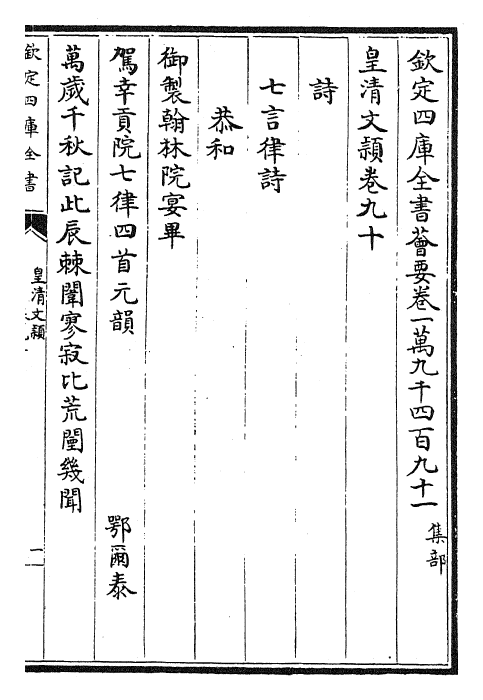 欽定四庫全書薈要卷一萬九千四百九十一 集部
皇清文穎卷九十
詩
七言律詩
恭和
御製翰林院宴畢
駕幸貢院七律四首元韻 鄂爾泰
萬歲千秋記此辰棘闈寥寂比荒闉幾聞
欽定四庫全書
皇清文穎
一